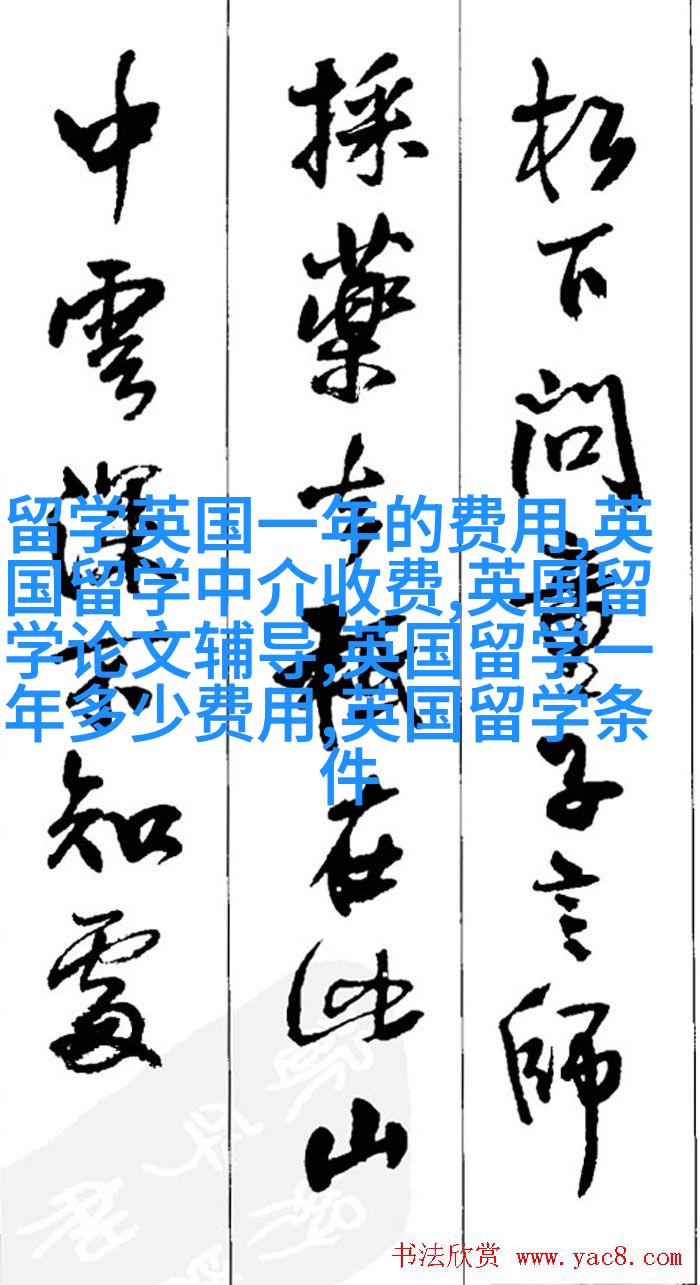 松下問童子言師
採藥去在此山
中雲深不知處
留学英国一年的费用,英
国留学中介收费,英国留
学论文辅导,英国留学一
年多少费用,英国留学条
件
书法欣赏 www.yac8.com